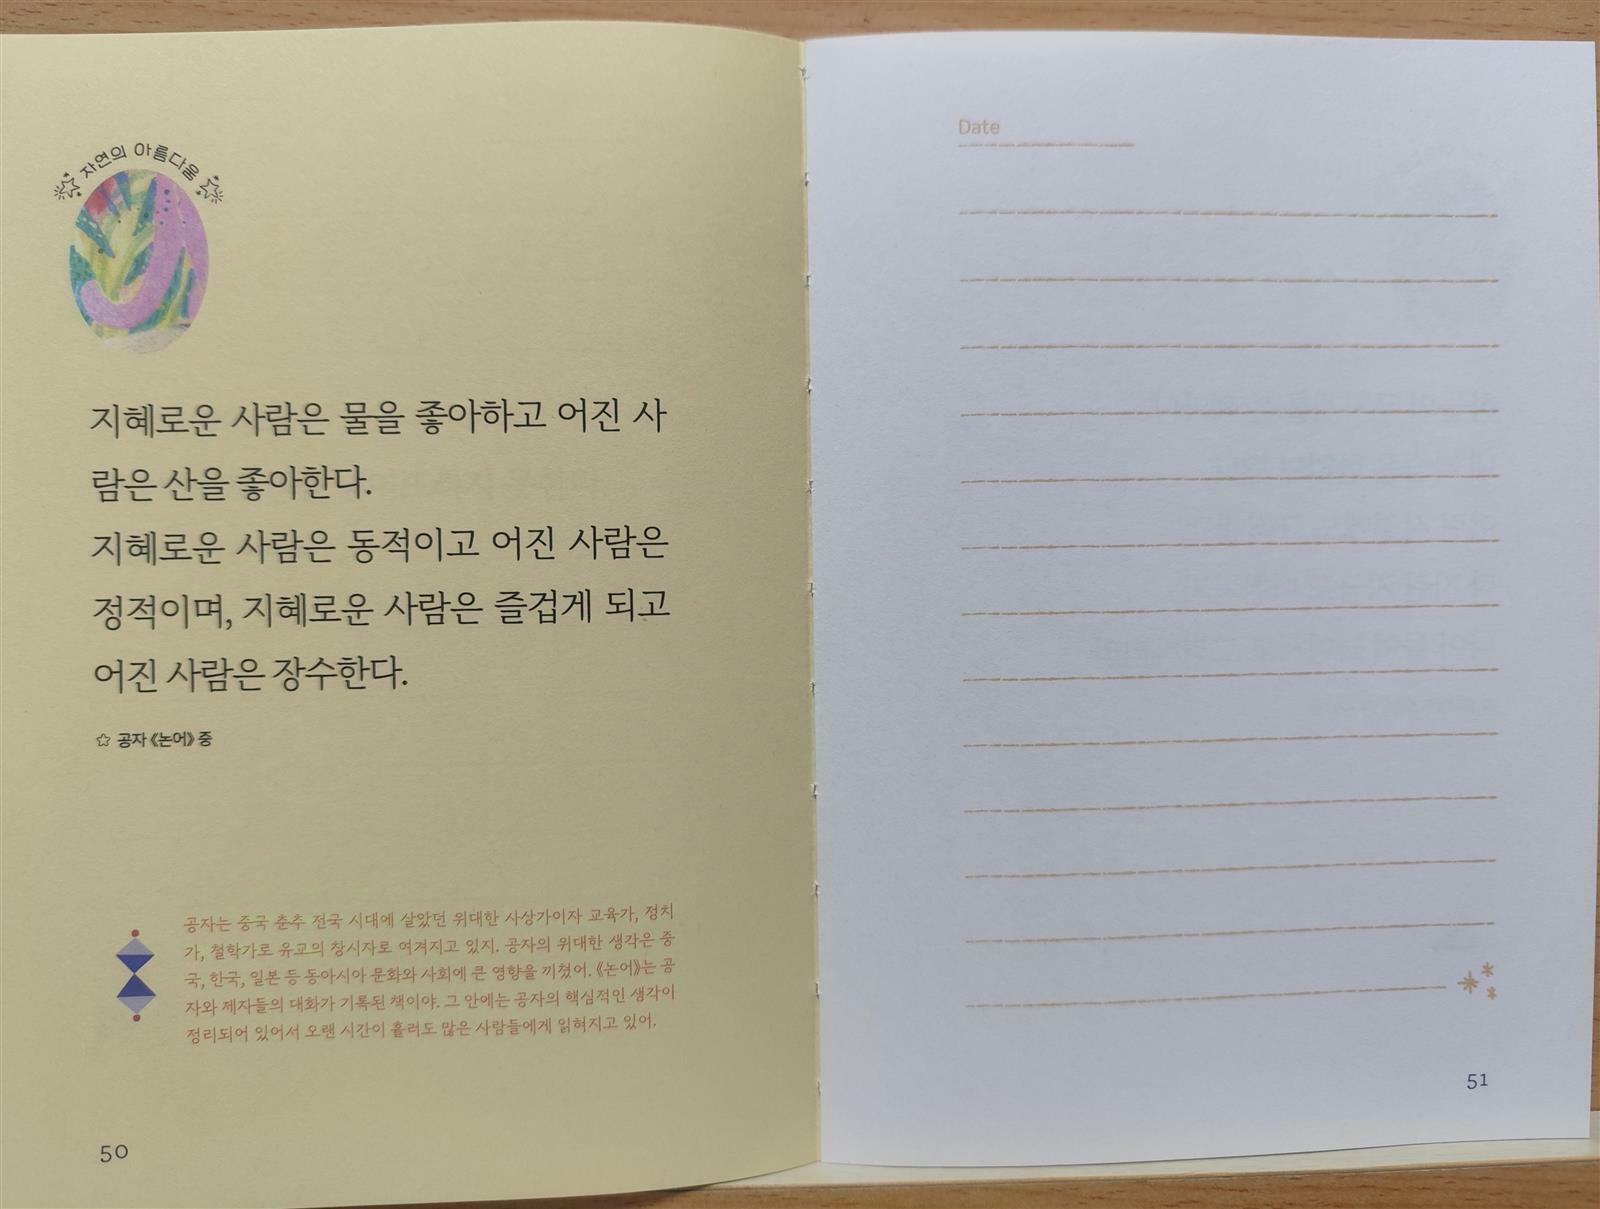 자연의 아름다움
지혜로운 사람은 물을 좋아하고 어진 사
람은 산을 좋아한다.
지혜로운 사람은 동적이고 어진 사람은
정적이며, 지혜로운 사람은 즐겁게 되고
어진 사람은 장수한다.
공자 《논어》 중
공자는 중국 춘추 전국 시대에 살았던 위대한 사상가이자 교육가, 정치
가, 철학가로 유교의 창시자로 여겨지고 있지. 공자의 위대한 생각은 중
국, 한국, 일본 등 동아시아 문화와 사회에 큰 영향을 끼쳤어. 《논어》는 공
자와 제자들의 대화가 기록된 책이야. 그 안에는 공자의 핵심적인 생각이
정리되어 있어서 오랜 시간이 흘러도 많은 사람들에게 읽혀지고 있어.
50
Date
51